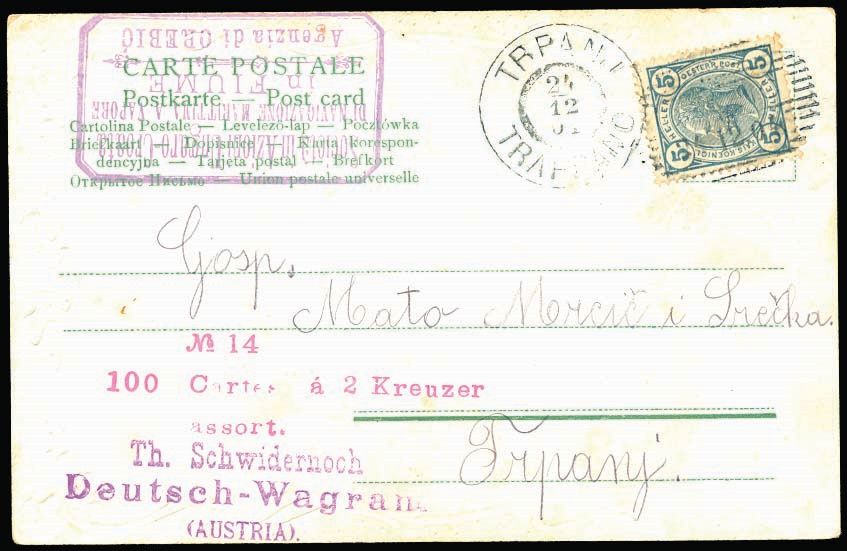 Agenzia di OREBIĆ
IN FIUME
DI NAVIGAZIONE MARITTIMA A VAPORE
CARTE POSTALE
Postkarte — Post card
Cartolina Postale — Levelező-lap — Pocztówka
Briefkaart — Dopisnice — Karta korespon-
dencyjna — Tarjeta postal — Brefkort
Открытое Письмо — Union postale universelle
TRPANJ
24
12
TRAPPANO
5 OESTERR. POST 5
HELLER HELLER
5 KAIS. KOENIGL. 5
Gjosp.
Mato Mrcić i Srećka.
№ 14
100 Cartes á 2 Kreuzer
assort.
Trpanj.
Th. Schwidernoch
Deutsch-Wagram
(AUSTRIA).